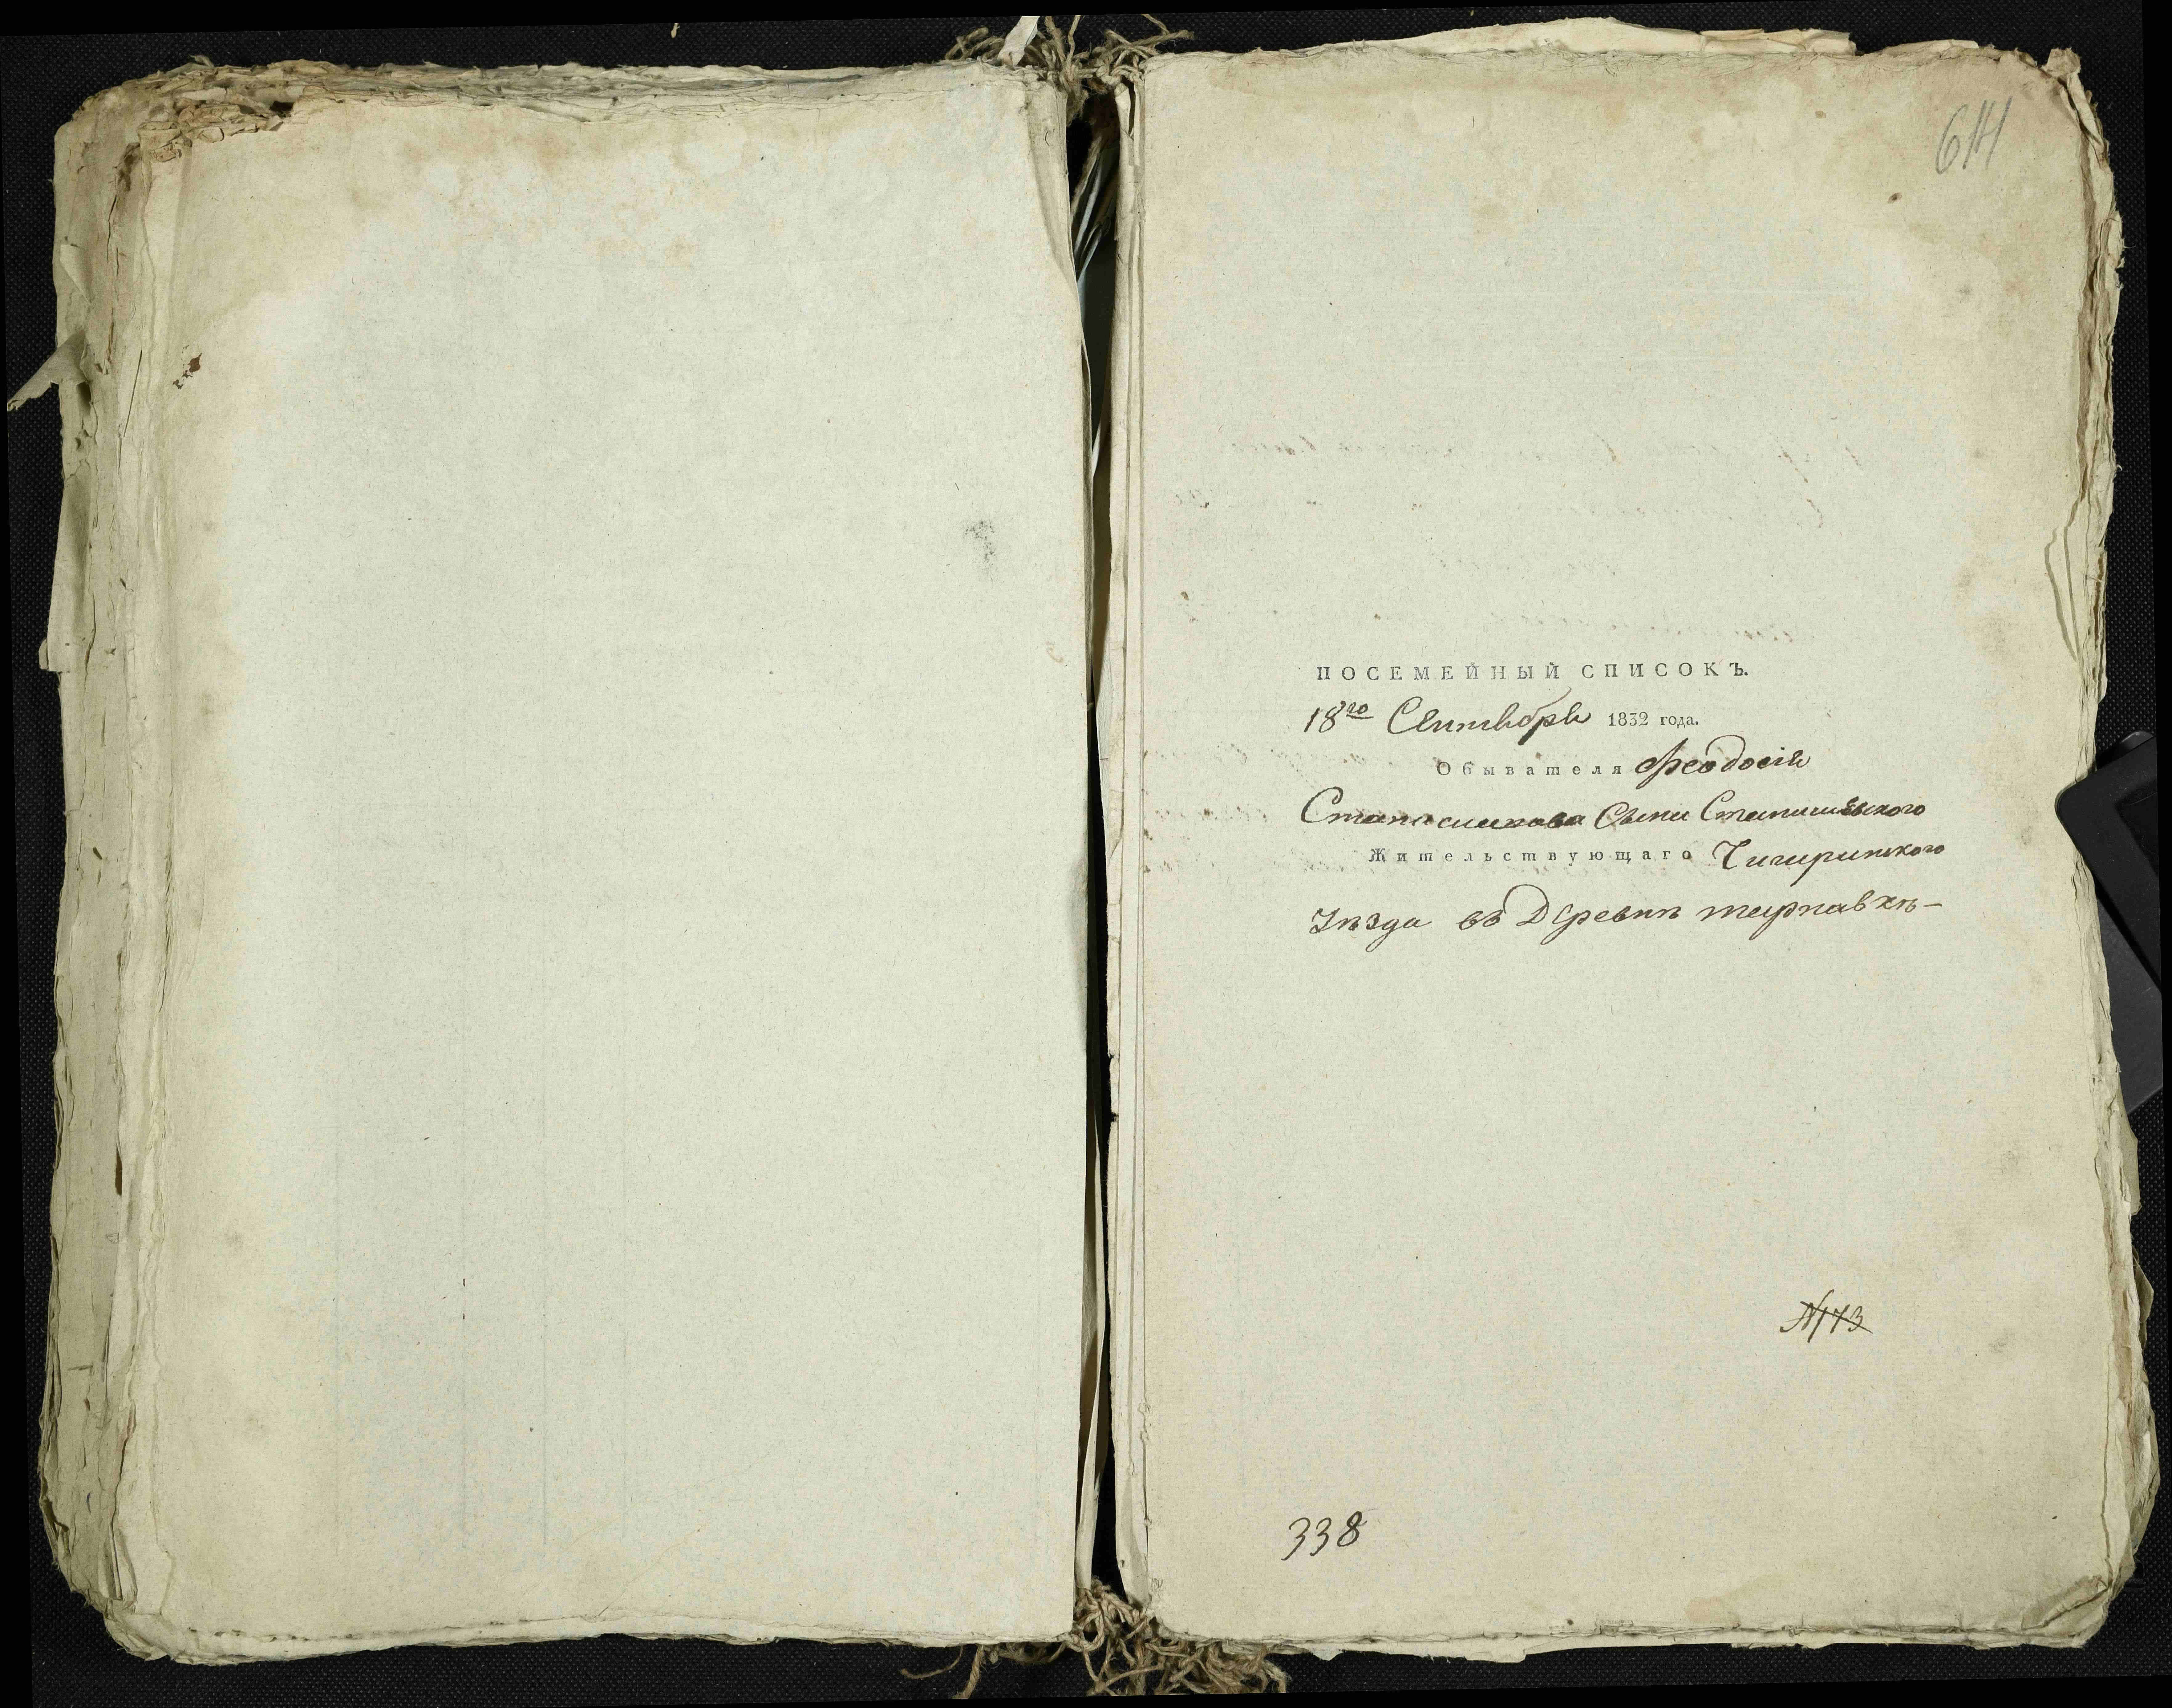 614
ПОСЕМЕЙНЫЙ СПИСОКЪ.
18го Сентября 1832 года.
Обывателя Феодосія
Станиславова Сына Станишевского
Жительствующаго Чигиринского
Уѣзда въ Деревнѣ тернавкѣ—
N173
338